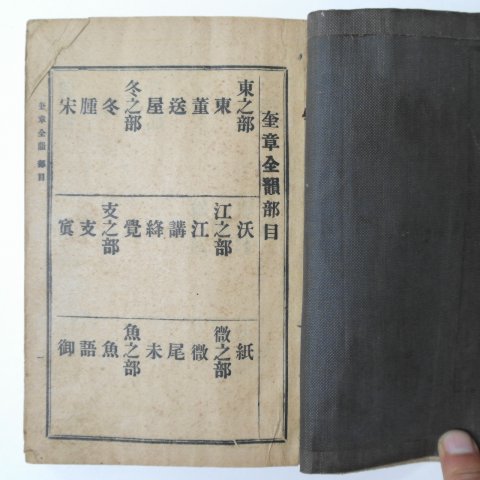 奎章全韻部目
東之部 東 董 送 屋 冬之部 冬 腫 宋
沃 江之部 江 講 絳 覺 支之部 支 寘
紙 微之部 微 尾 未 魚之部 魚 語 御
奎章全韻 部目